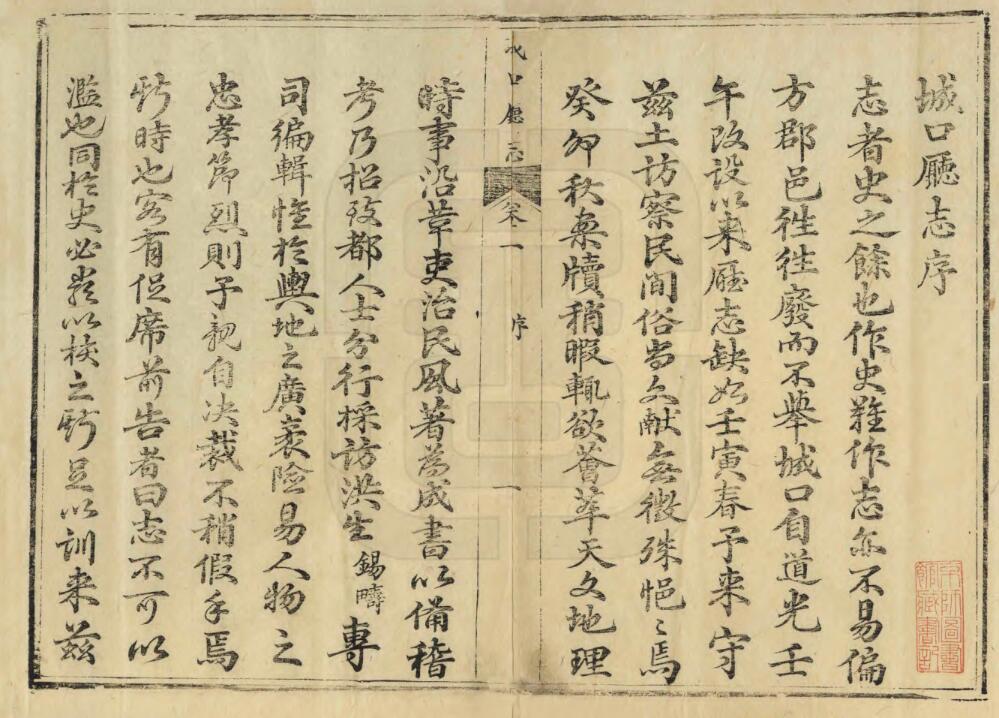 城口廳志序
志者史之餘也作史難作志亦不易偏
方郡邑徃徃廢而不舉城口自道光壬
午改設以來廳志缺如壬寅春予来守
兹土訪察民間俗尚文献無徴殊悒〻焉
癸卯秋案牘稍暇輒欲薈萃天文地理
城口廳志
卷一
序
一
時事沿革吏治民風著為成書以備稽
考乃招致都人士分行採訪洪生錫疇專
司編輯惟於輿地之廣袤險易人物之
忠孝節烈則予親自决裁不稍假手焉
斯時也客有促席前告者曰志不可以
濫也同於史必嚴以核之斯足以訓来兹